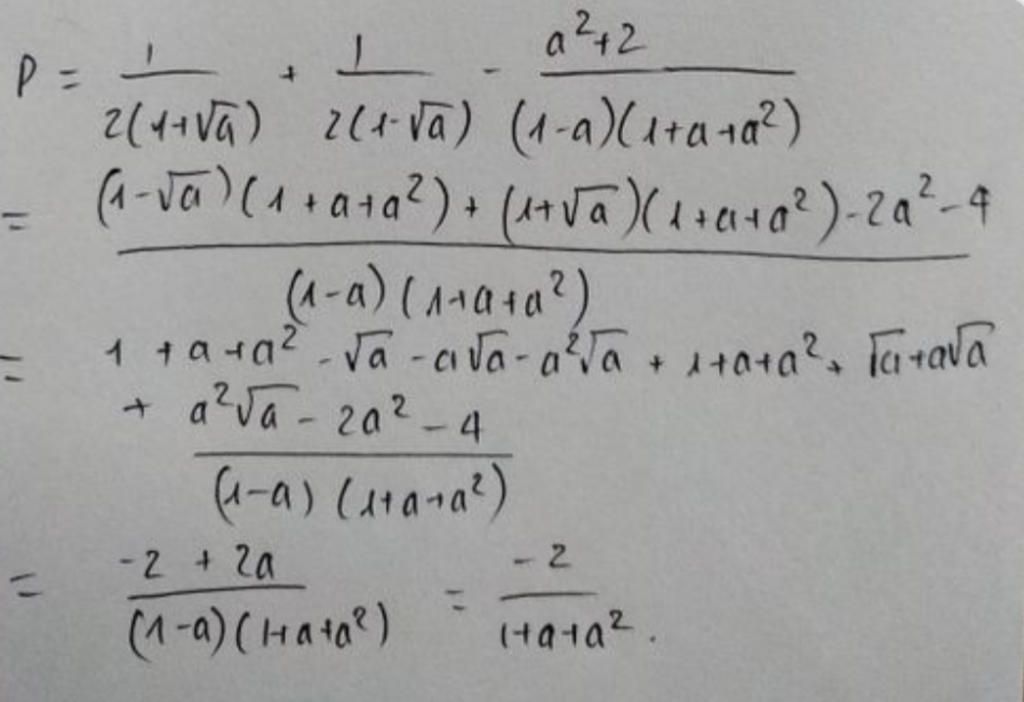 P = 1/(2(1+√a)) + 1/(2(1-√a)) - (a²+2)/((1-a)(1+a+a²))
= ((1-√a)(1+a+a²) + (1+√a)(1+a+a²) - 2a² - 4)/((1-a)(1+a+a²))
= 1 + a + a² - √a - a√a - a²√a + 1+a+a² + √a + a√a
+ a²√a - 2a² - 4
(1-a)(1+a+a²)
= (-2 + 2a)/((1-a)(1+a+a²)) = -2/(1+a+a²).